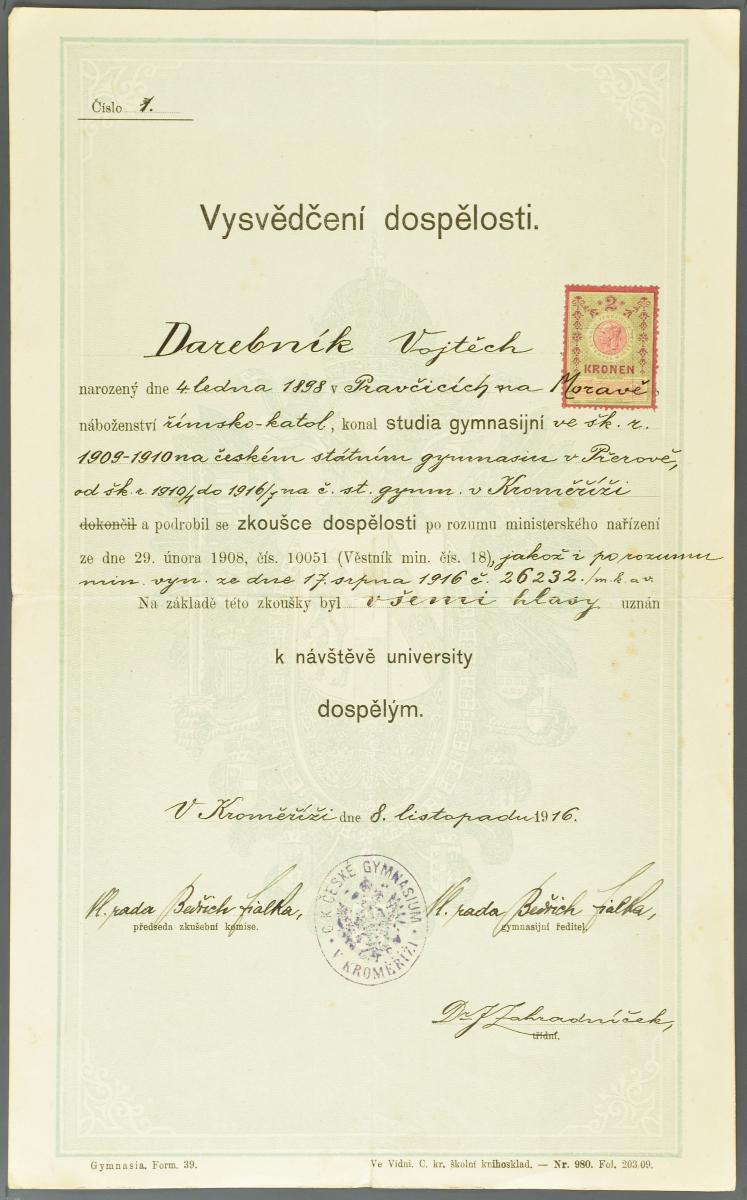 Číslo 1.
Vysvědčení dospělosti.
2
KRONEN
Darebník Vojtěch
narozený dne 4. ledna 1898 v Pravčicích na Moravě,
náboženství římsko-katol., konal studia gymnasijní ve šk. r.
1909-1910 na českém státním gymnasiu v Přerově,
od šk. r. 1910/1 do 1916/7 na č. st. gymn. v Kroměříži
dokončil a podrobil se zkoušce dospělosti po rozumu ministerského nařízení
ze dne 29. února 1908, čís. 10051 (Věstník min. čís. 18), jakož i po rozumu
min. vyn. ze dne 17. srpna 1916 č. 26232./m.k.a v.
Na základě této zkoušky byl všemi hlasy uznán
k návštěvě university
dospělým.
V Kroměříži dne 8. listopadu 1916.
Vl. rada Bedřich Fialka,
předseda zkušební komise.
C. K. ČESKÉ GYMNASIUM
V KROMĚŘÍŽI
Vl. rada Bedřich Fialka,
gymnasijní ředitel.
Dr. J. Zahradníček,
třídní.
Gymnasia, Form. 39.
Ve Vídni. C. kr. školní knihosklad. — Nr. 980. Fol. 203.09.